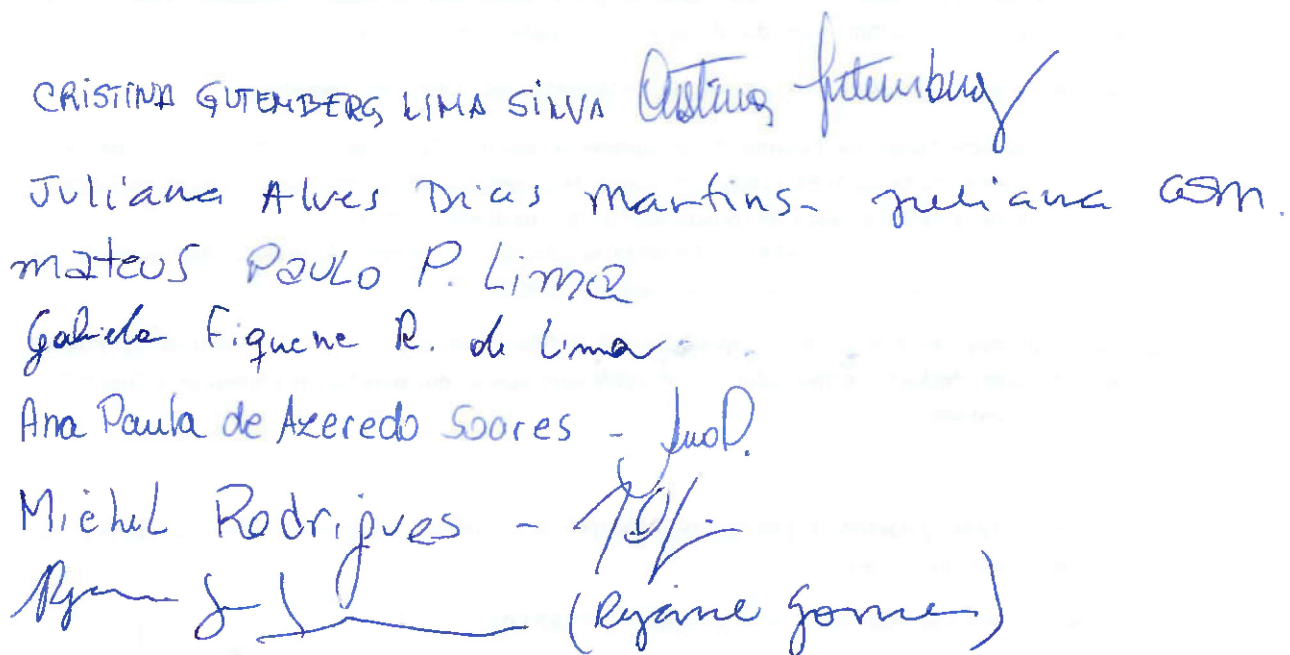 CRISTINA GUTEMBERG LIMA SILVA Cristina Gutemberg
Juliana Alves Dias Martins - Juliana
Mateus Paulo P. Lima
Gabriela Fiquene R. de Lima.
Ana Paula de Azeredo Soares - Ana P.
Michel Rodrigues -
(Rejane Gomes)